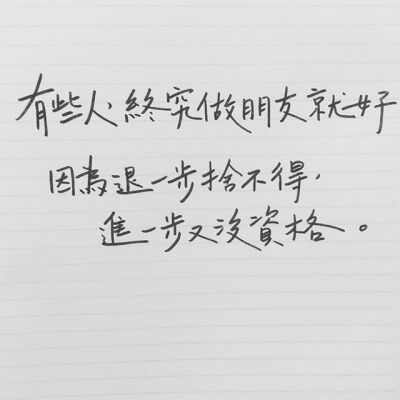 有些人,終究做朋友就好
因為退一步捨不得,
進一步又沒資格。